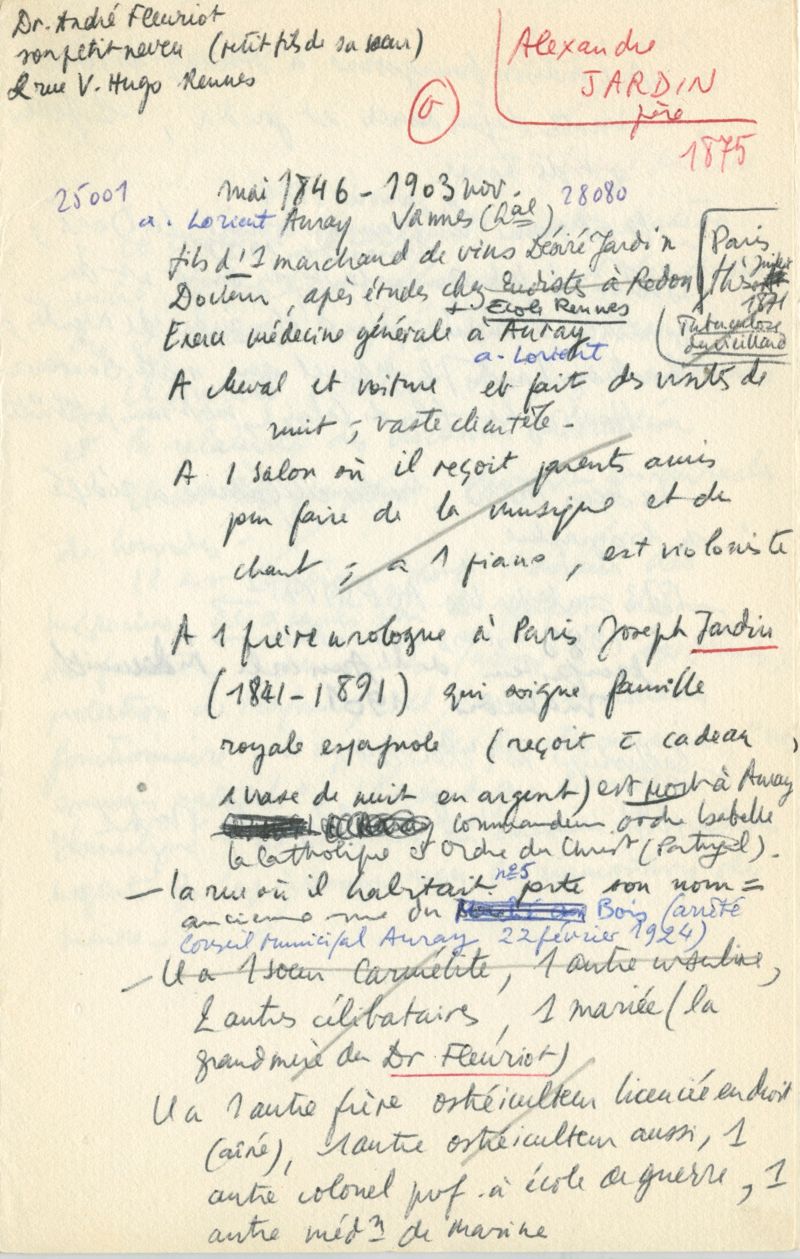 Dr. André Fleuriot
son petit neveu (petit fils de sa sœur)
2 rue V. Hugo Rennes
Alexandre
JARDIN
père
1875
mai 1846 - 1903 nov.
25001
28080
a. Lorient Auray Vannes (hal)
fils d'1 marchand de vins Désiré Jardin
Docteur, après études chez Eudistes à Redon
+ Ecole Rennes
Paris
thèse
1871
Tuberculose
du vieillard
Exerce médecine générale à Auray
a. Lorient
A cheval et voiture et fait des visites de
nuit ; vaste clientèle -
A 1 salon où il reçoit parents amis
pour faire de la musique et du
chant ; a 1 piano, est violoniste
A 1 frère urologue à Paris Joseph Jardin
(1841-1891) qui soigne famille
royale espagnole (reçoit = cadeau,
1 vase de nuit en argent) est mort à Auray
commandeur ordre Isabelle
la Catholique et Ordre du Christ (Portugal).
- la rue où il habitait n°5 porte son nom =
ancienne rue du Bois (arrêté
Conseil Municipal Auray 22 février 1924)
- Il a 1 sœur Carmélite, 1 autre ursuline,
2 autres célibataires, 1 mariée (la
grandmère du Dr Fleuriot)
Il a 1 autre frère ostréiculteur licencié en droit
(aîné), 1 autre ostréiculteur aussi, 1
autre colonel prof. à école de guerre, 1
autre médn de marine